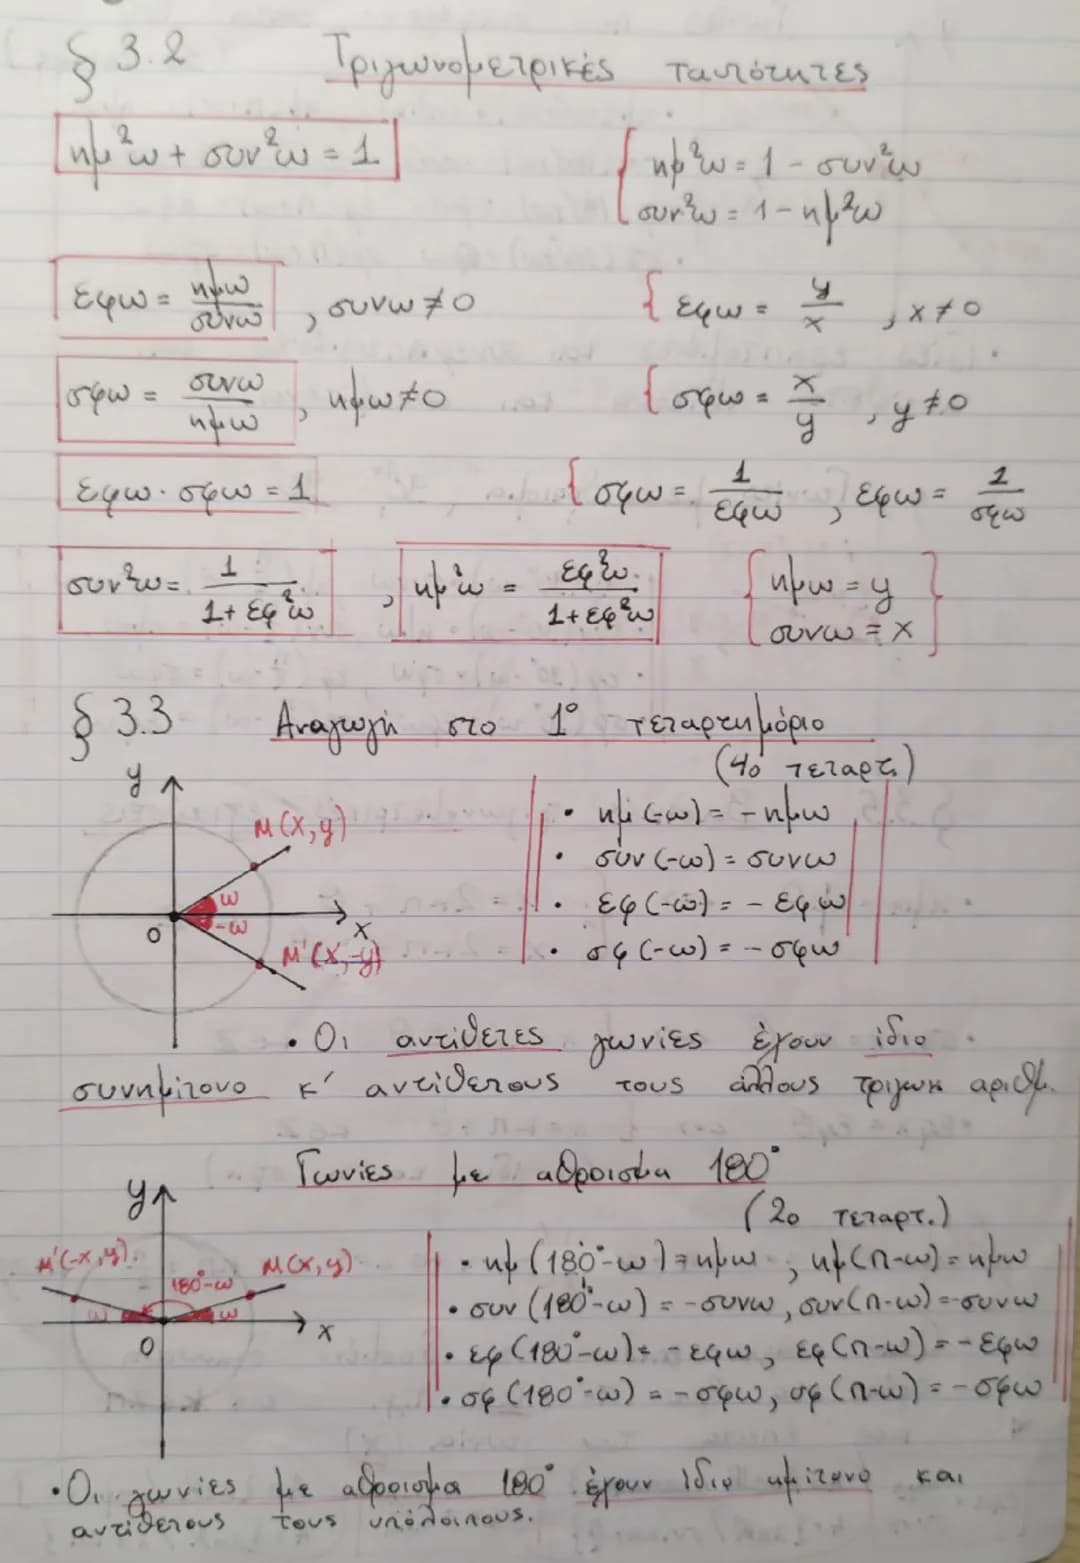 § 3.2 Τριγωνομετρικές ταυτότητες
ημ²ω + συν²ω = 1 { ημ²ω = 1 - συν²ω
συν²ω = 1 - ημ²ω
εφω = ημω/συνω , συνω ≠ 0 { εφω = y/x , x ≠ 0
σφω = συνω/ημω , ημω ≠ 0 { σφω = x/y , y ≠ 0
εφω · σφω = 1 { σφω = 1/εφω , εφω = 1/σφω
συν²ω = 1/(1 + εφ²ω) , ημ²ω = εφ²ω/(1 + εφ²ω) { ημω = y
συνω = x }
§ 3.3 Αναγωγή στο 1° τεταρτημόριο
(4ο τεταρτ.)
y
M(x,y)
ω
-ω
O
x
M'(x,-y)
• ημ(-ω) = -ημω
• συν(-ω) = συνω
• εφ(-ω) = -εφω
• σφ(-ω) = -σφω
• Οι αντίθετες γωνίες έχουν ίδιο
συνημίτονο κ' αντίθετους τους άλλους τριγων αριθμ.
Γωνίες με αθροισμα 180°
(2ο τεταρτ.)
y
M'(-x,y)
M(x,y)
180°-ω
ω
ω
O
x
• ημ(180°-ω) = ημω , ημ(π-ω) = ημω
• συν(180°-ω) = -συνω, συν(π-ω) = -συνω
• εφ(180°-ω) = -εφω, εφ(π-ω) = -εφω
• σφ(180°-ω) = -σφω, σφ(π-ω) = -σφω
• Οι γωνίες με αθροισμα 180° έχουν ίδιο ημίτονο και
αντίθετους τους υπόλοιπους.